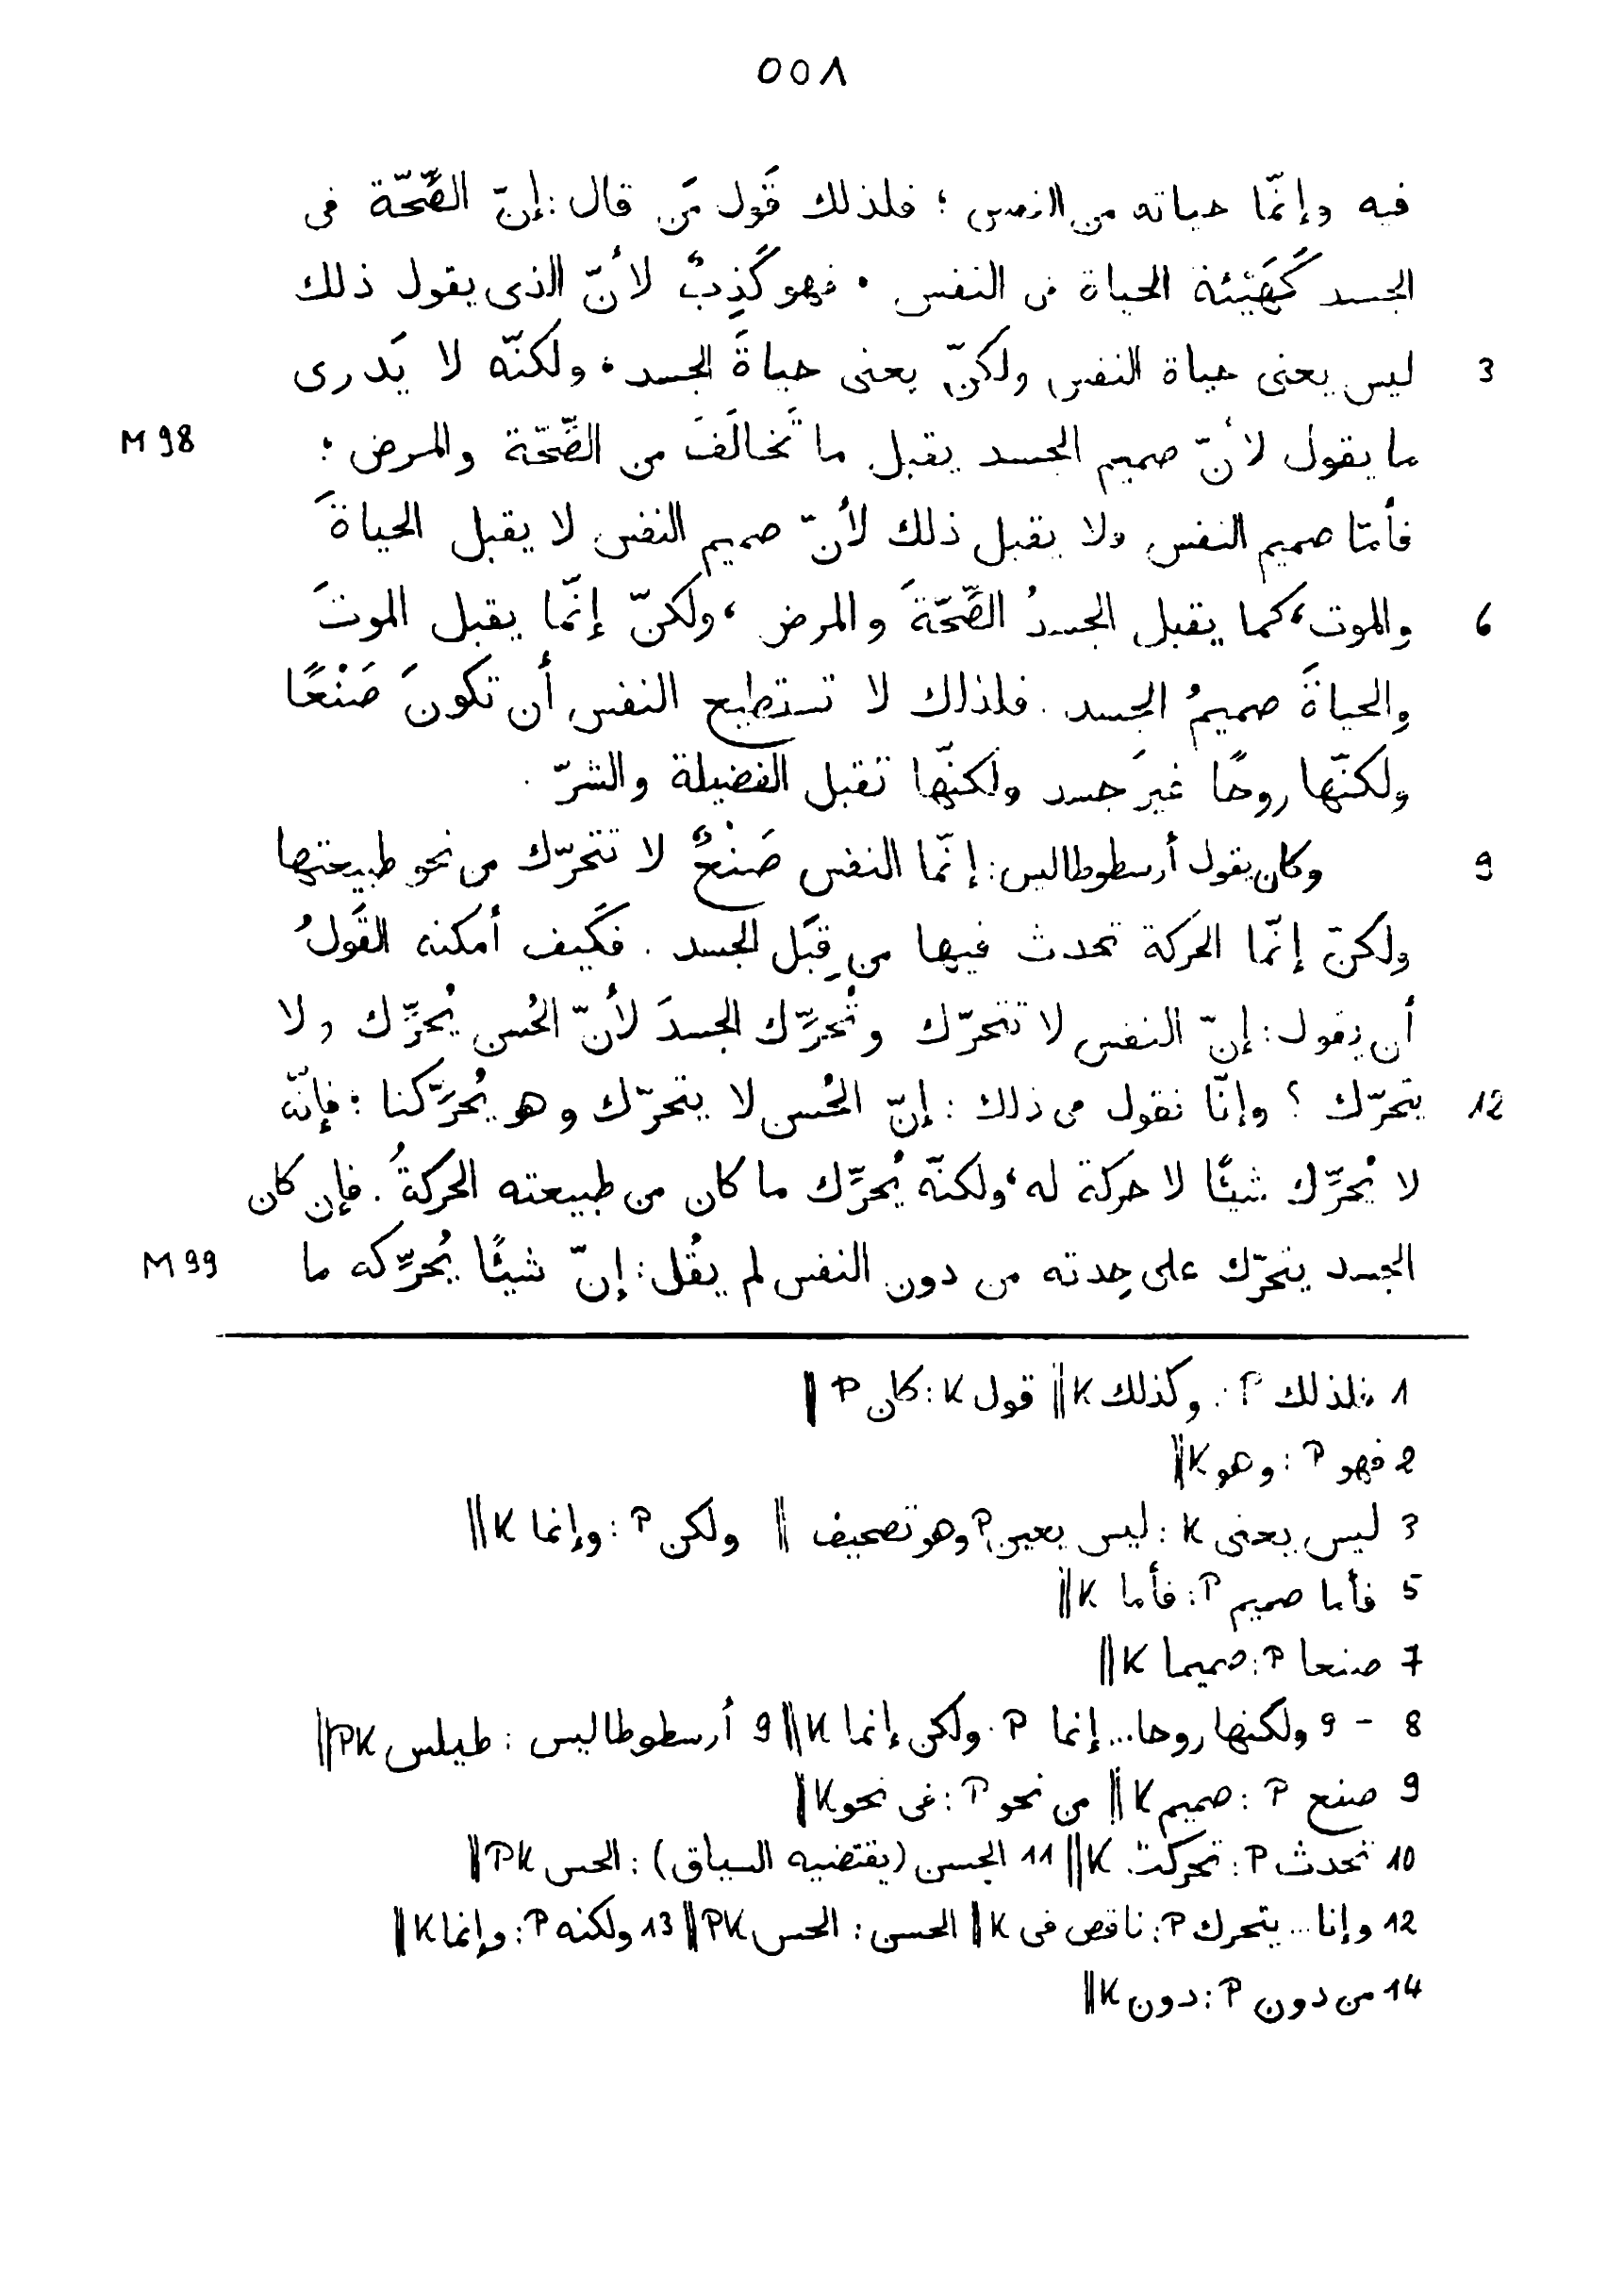 ٥٥٨
فيه وإنّما حياته من النفس؛ فلذلك قَول مَن قال: إنّ الصِّحّة فى
الجسد كَهَيْئة الحياة فى النفس، فهو كَذِبٌ لأنّ الذى يقول ذلك
3 ليس يعنى حياة النفس ولكنّ يعنى حياةَ الجسد، ولكنّه لا يَدرى
ما يقول لأنّ صميم الجسد يقبل ما تَخالَفَ من الصِّحّة والمرض؛ M 98
فأمّا صميم النفس ولا يقبل ذلك لأنّ صميم النفس لا يقبل الحياةَ
6 والموت، كما يقبل الجسدُ الصِّحّةَ والمرض، ولكنّ إنّما يقبل الموتَ
والحياةَ صميمُ الجسد. فلذلك لا تستطيع النفس أن تكونَ صَنْعًا
ولكنّها روحًا غيرَ جسد ولكنّها تقبل الفضيلة والشرّ.
9 وكان يقول أرسطوطاليس: إنّما النفس صَنْعٌ لا تتحرّك من نحو طبيعتها
ولكنّ إنّما الحركة تحدث فيها من قِبَل الجسد. فكَيف أمكنه القَولُ
أن يقول: إنّ النفس لا تتحرّك وتُحرِّك الجسدَ لأنّ الحُسن يُحرِّك ولا
12 يتحرّك؟ وإنّا نقول فى ذلك: إنّ الحُسن لا يتحرّك وهو يُحرِّكنا؛ فإنّه
لا يُحرِّك شيئًا لا حركة له، ولكنّه يُحرِّك ما كان من طبيعته الحركةُ. فإن كان
الجسد يتحرّك على حِدته من دون النفس لم يقُل: إنّ شيئًا يُحرِّكه ما M 99
1 فلذلك P: وكذلك K || قول K: كان P ||
2 فهو P: وهو K ||
3 ليس يعنى K: ليس يعين P وهو تصحيف || ولكن P: وإنما K ||
5 فأما صميم P: فأما K ||
7 صنعا P: صميما K ||
8 - 9 ولكنها روحا... إنما P: ولكن إنما K || 9 أرسطوطاليس: طيلس PK ||
9 صنع P: صميم K || من نحو P: فى نحو K ||
10 تحدث P: تحركت K || 11 الحسن (يقتضيه السياق): الحس PK ||
12 وإنا... يتحرك P: ناقص فى K || الحسن: الحس PK || 13 ولكنه P: وإنما K ||
14 من دون P: دون K ||